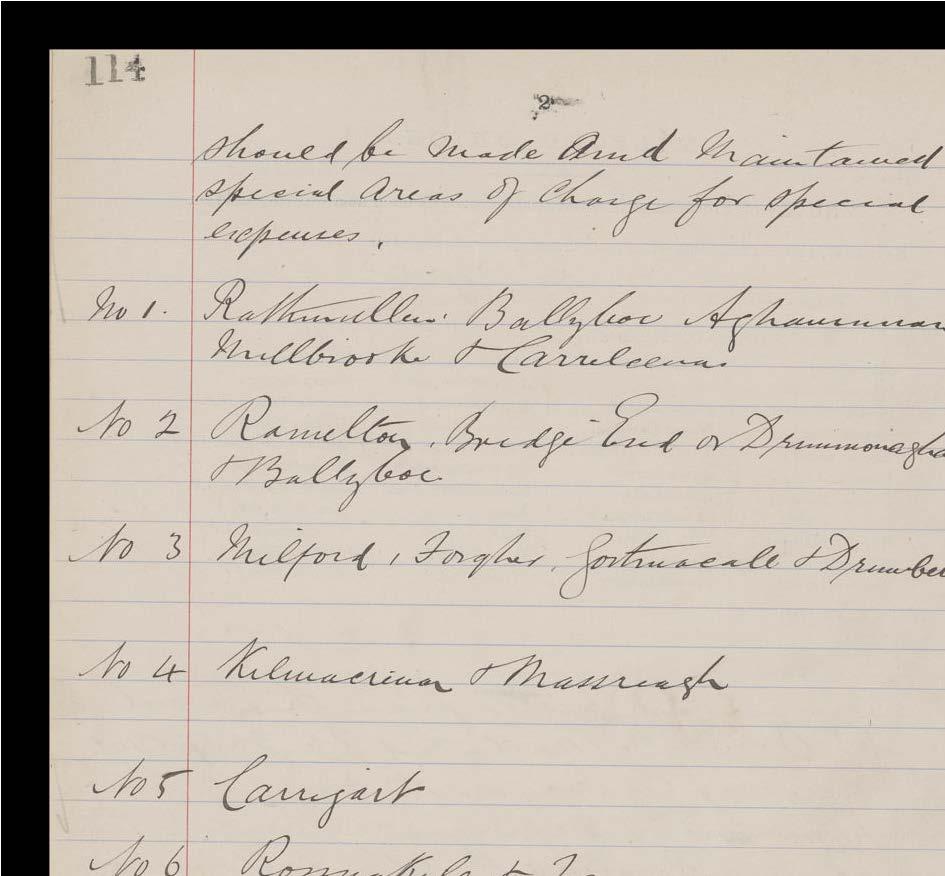 114
2
should be made and Maintained
special areas of Charge for special
expenses.
No 1. Rathmullen. Ballyboe
Millbrooke &
No 2 Ramelton, Bridge End or Drummonagha
& Ballyboe.
No 3 Milford, Forgher, Gortmacall &
No 4 Kilmacrenan & Massreagh
No 5 Carrigart
No 6